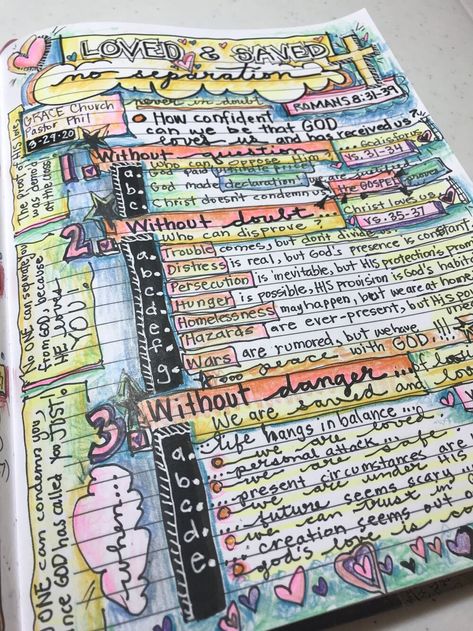 LOVED & SAVED
no separation
ROMANS 8:31-39
GRACE Church
Pastor Phil
3-29-20
never in doubt
HOW confident
can we be that GOD
loves us and has received us?
The proof of HIS love
was demo'd
at the cross!
Without question
GOD is for us
vs. 31-34
Who can oppose Him?
a.
b. GOD made declaration we are justified
c. Christ doesn't condemn us
the GOSPEL
2.
Without doubt...
Christ loves us
vs. 35-37
Who can disprove?
a. Trouble comes, but don't
b. Distress is real, but GOD's presence is constant
c. Persecution is inevitable, but HIS protection's
d. Hunger is possible, HIS provision is GOD's habit
e. Homelessness may happen, but we are at home
f. Hazards are ever-present, but HIS
g. Wars are rumored, but we have !!!
grace with GOD...!!!
No ONE can separate you
from GOD, because
HE loves
YOU.
3.
Without danger...
We are saved and
NO ONE can condemn you,
since GOD has called you JUST!
when...
a. life hangs in balance...
we are loved
b. personal attack...
we are safe
c. present circumstances are
we are under HIS
d. future seems scary
we can trust in
e. creation seems out
God's love is